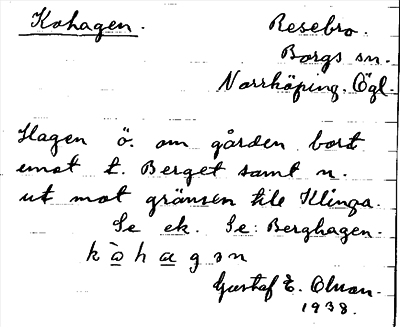 Kohagen.
Resebro.
Borgs sn.
Norrköping. Ögl.
Hagen ö. om gården bort
emot t. Berget samt n.
ut mot gränsen till Klinga.
Se ek. Se: Berghagen.
k ò h a g ə n
Gustaf E. Olson.
1938.